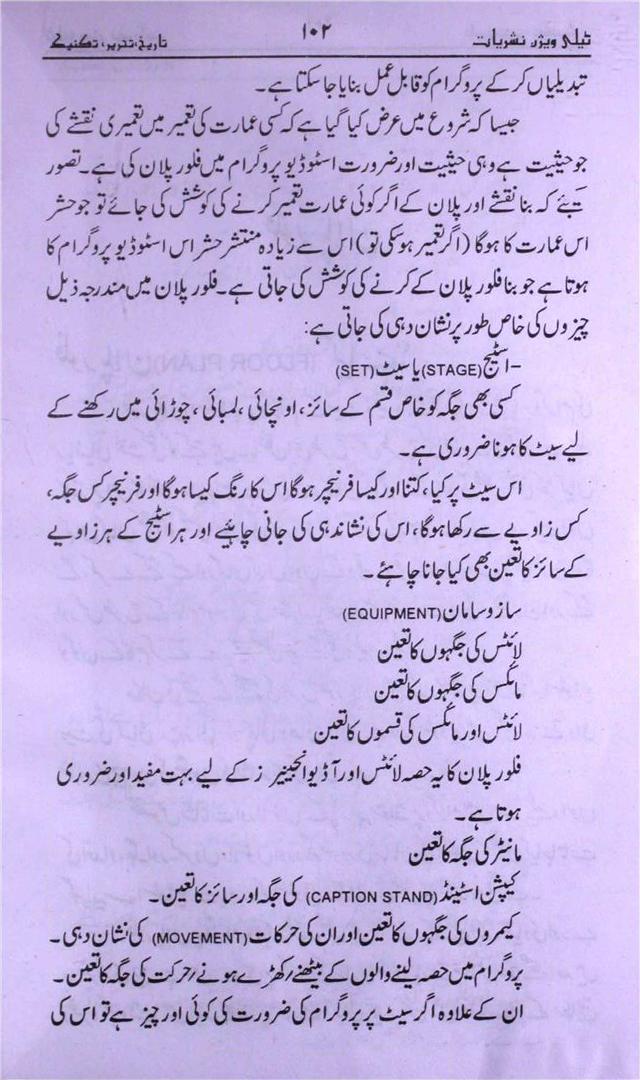 ٹیلی ویژن نشریات ۱۰۲ تاریخ، تحریر، تکنیک
تبدیلیاں کر کے پروگرام کو قابل عمل بنایا جا سکتا ہے۔
جیسا کہ شروع میں عرض کیا گیا ہے کہ کسی عمارت کی تعمیر میں تعمیری نقشے کی
جو حیثیت ہے وہی حیثیت اور ضرورت اسٹوڈیو پروگرام میں فلور پلان کی ہے۔ تصور
کیجئے کہ بنا نقشے اور پلان کے اگر کوئی عمارت تعمیر کرنے کی کوشش کی جائے تو جو حشر
اس عمارت کا ہوگا (اگر تعمیر ہو سکی تو) اس سے زیادہ منتشر حشر اس اسٹوڈیو پروگرام کا
ہوتا ہے جو بنا فلور پلان کے کرنے کی کوشش کی جاتی ہے۔ فلور پلان میں مندرجہ ذیل
چیزوں کی خاص طور پر نشان دہی کی جاتی ہے:
-اسٹیج (STAGE) یا سیٹ (SET)
کسی بھی جگہ کو خاص قسم کے سائز، اونچائی، لمبائی، چوڑائی میں رکھنے کے
لیے سیٹ کا ہونا ضروری ہے۔
اس سیٹ پر کیا، کتنا اور کیسا فرنیچر ہوگا اس کا رنگ کیسا ہوگا اور فرنیچر کس جگہ،
کس زاویے سے رکھا ہوگا، اس کی نشاندہی کی جانی چاہئیے اور ہر اسٹیج کے ہر زاویے
کے سائز کا تعین بھی کیا جانا چاہئے۔
ساز و سامان (EQUIPMENT)
لائٹس کی جگہوں کا تعین
مائکس کی جگہوں کا تعین
لائٹس اور مائکس کی قسموں کا تعین
فلور پلان کا یہ حصہ لائٹس اور آڈیو انجینیرز کے لیے بہت مفید اور ضروری
ہوتا ہے۔
مانیٹر کی جگہ کا تعین
کیپشن اسٹینڈ (CAPTION STAND) کی جگہ اور سائز کا تعین۔
کیمروں کی جگہوں کا تعین اور ان کی حرکات (MOVEMENT) کی نشان دہی۔
پروگرام میں حصہ لینے والوں کے بیٹھنے/کھڑے ہونے/حرکت کی جگہ کا تعین۔
ان کے علاوہ اگر سیٹ پر پروگرام کی ضرورت کی کوئی اور چیز ہے تو اس کی